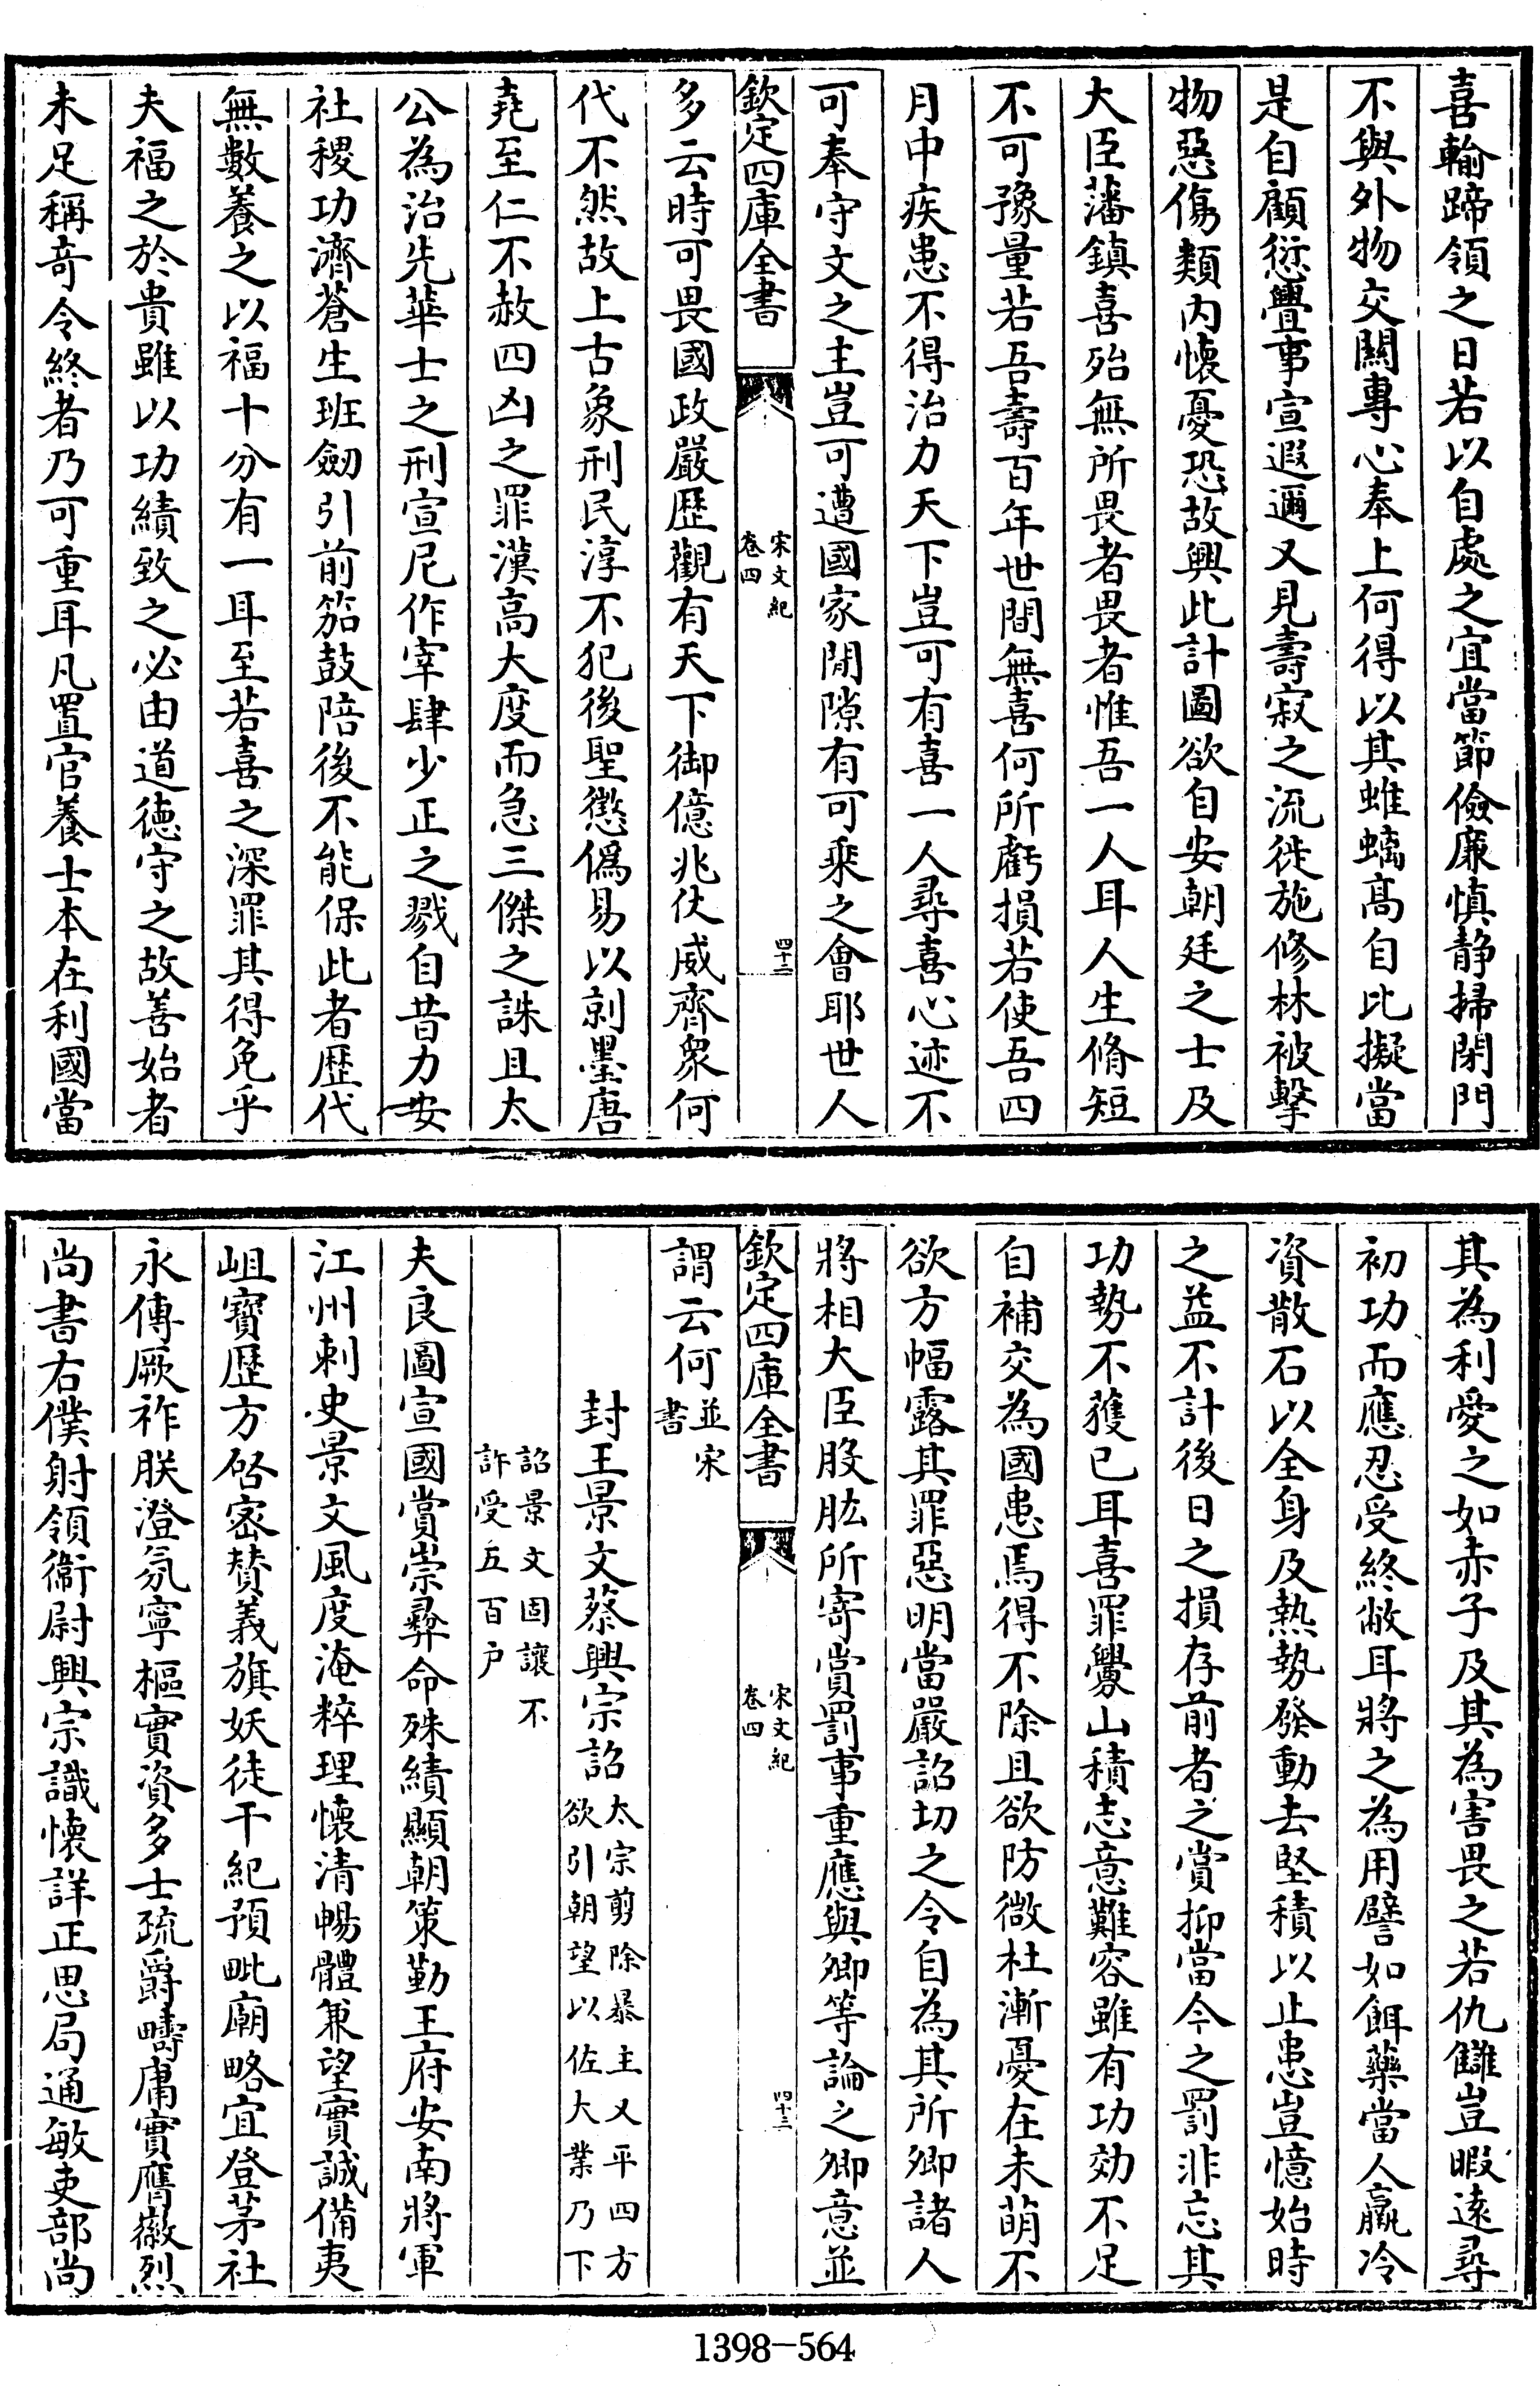 喜輸蹄領之日若以自處之宜當節儉廉慎静掃閉門
不與外物交關專心奉上何得以其蜼蟎高自比擬當
是自顧愆舋事宣遐邇又見壽寂之流徙施修林被擊
物惡傷類内懐憂恐故興此計圖欲自安朝廷之士及
大臣藩鎮喜殆無所畏者畏者惟吾一人耳人生脩短
不可豫量若吾壽百年世間無喜何所虧損若使吾四
月中疾患不得治力天下豈可有喜一人尋喜心迹不
可奉守文之主豈可遭國家閒隙有可乘之會耶世人
欽定四庫全書
宋文紀
卷四
四十二
多云時可畏國政嚴歷觀有天下御億兆仗威齊衆何
代不然故上古象刑民淳不犯後聖懲偽易以剠墨唐
堯至仁不赦四凶之罪漢高大度而急三傑之誅且太
公為治先華士之刑宣尼作宰肆少正之戮自昔力安
社稷功濟蒼生班劒引前笳鼓陪後不能保此者歴代
無數養之以福十分有一耳至若喜之深罪其得免乎
夫福之於貴雖以功績致之必由道徳守之故善始者
未足稱奇令終者乃可重耳凡置官養士本在利國當
其為利愛之如赤子及其為害畏之若仇讎豈暇遠尋
初功而應忍受終敝耳將之為用譬如餌藥當人羸冷
資散石以全身及熱勢發動去堅積以止患豈憶始時
之益不計後日之損存前者之賞抑當今之罰非忘其
功勢不獲已耳喜罪釁山積志意難容雖有功効不足
自補交為國患焉得不除且欲防微杜漸憂在未萌不
欲方幅露其罪惡明當嚴詔切之令自為其所卿諸人
將相大臣股肱所寄賞罰事重應與卿等論之卿意並
欽定四庫全書
宋文紀
卷四
四十三
謂云何並宋
書
封王景文蔡興宗詔太宗剪除暴主又平四方
欲引朝望以佐大業乃下
詔景文固讓不
許受五百户
夫良圖宣國賞崇彛命殊績顯朝策勤王府安南將軍
江州刺史景文風度淹粹理懐清暢體兼望實誠備夷
岨寳歴方啓密賛義旗妖徒干紀預毗廟略宜登茅社
永傳厥祚朕澄氛寧樞實資多士疏爵疇庸實膺徽烈
尚書右僕射領衞尉興宗識懐詳正思局通敏吏部尚
1398-564